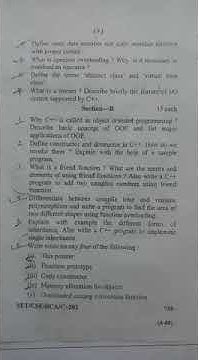 ( 3 )
Define static data member and static member function with proper syntax.
What is operator overloading ? Why is it necessary to overload an operator ?
Define the terms 'abstract class' and 'virtual base class'.
What is a stream ? Describe briefly the features of I/O system supported by C++.
Section—B 15 each
1. Why C++ is called as object oriented programming ?
Describe basic concept of OOP and list major
applications of OOP.
2. Define constructor and destructor in C++. How do we
invoke them ? Explain with the help of a sample
program.
3. What is a friend function ? What are the merits and
demerits of using friend functions ? Also write a C++
program to add two complex numbers using friend
function.
Differentiate between compile time and runtime
polymorphism and write a program to find the area of
two different shapes using function overloading.
5. Explain with example the different forms of
inheritance. Also write a C++ program to implement
single inheritance.
Write notes on any four of the following :
(i) This pointer
(ii) Function prototype
(iii) Copy constructor
(iv) Memory allocation for objects
(v) Overloaded